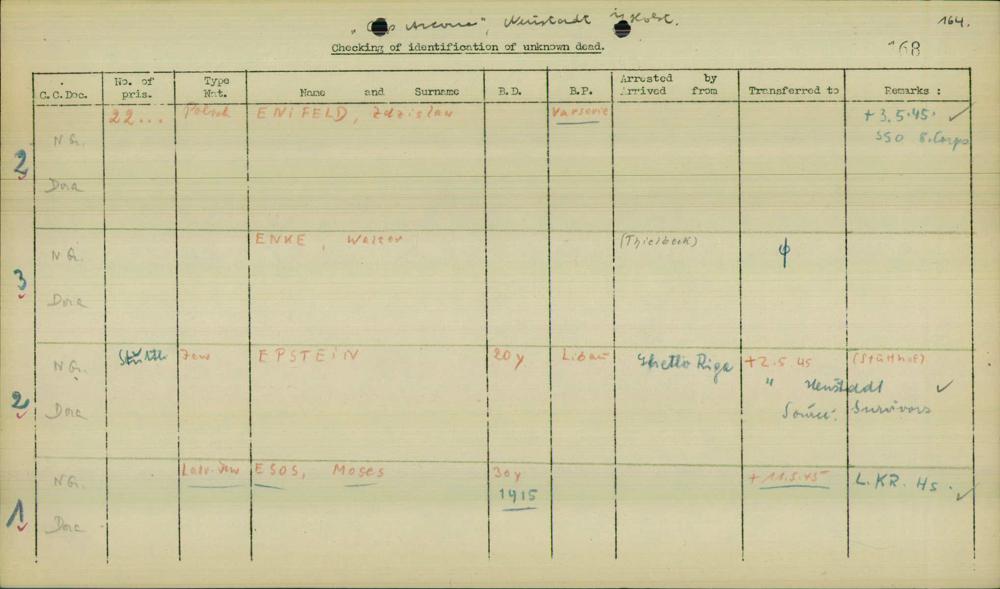 Neustadt i/Holst.
164.
Checking of identification of unknown dead.
68
C.C.Doc. No. of pris. Type Nat. Name and Surname B.D. B.P. Arrested by Arrived from Transferred to Remarks :
22... Polish ENiFELD, Zdzislaw Varsovie + 3.5.45. ✓
N G. SSO 8.Corps
2
Dora
ENKE, Walter (Thielbeck)
N G. φ
3
Dora
Stutth. Jew EPSTEIN 20y Libau Ghetto Riga +2.5.45 (Stutthof)
N G. " Neustadt ✓
2 Dora Source: Survivors
Latv. Jew ESOS, Moses 30y + 11.5.45 L.KR. Hs. ✓
N G. 1915
1 Dora